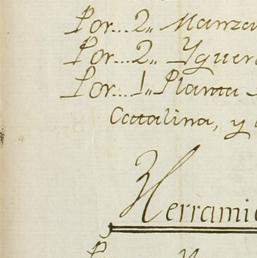 Por... 2,, Manzan
Por... 2,, Yguer
Por... 1,, Planta
Catalina, y
Herrami